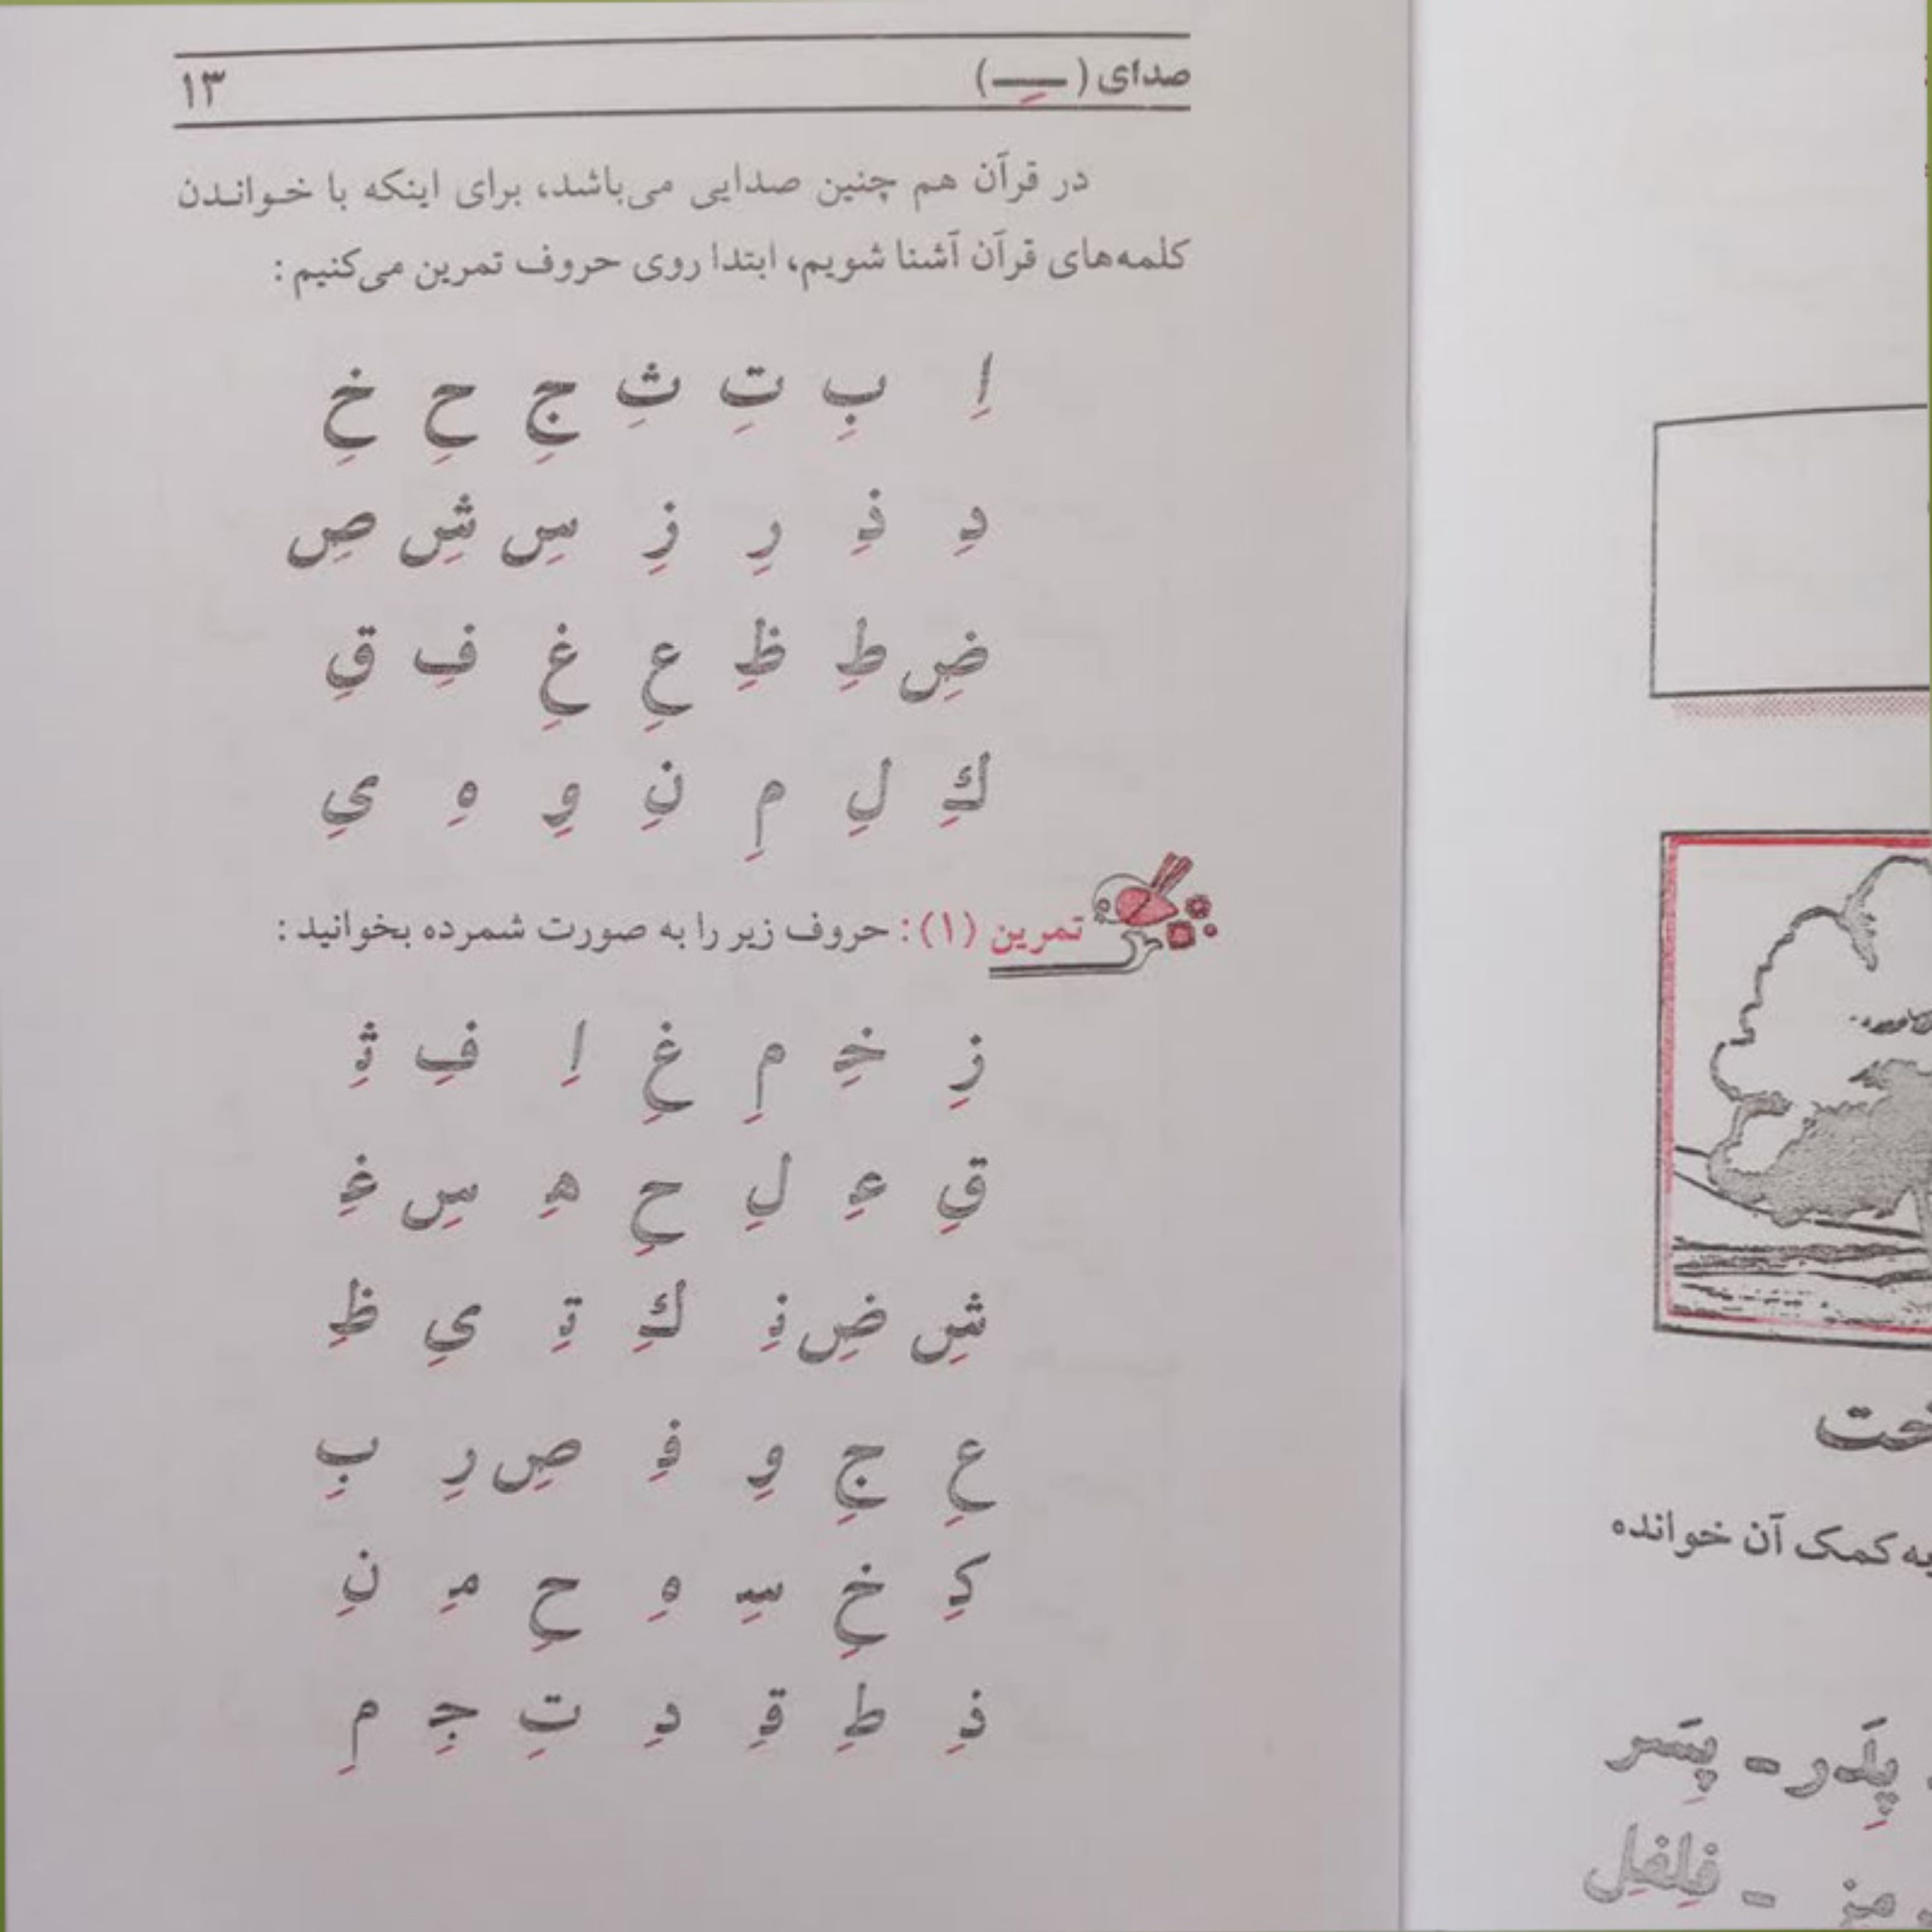 صدای (ـِـ) ۱۳
در قرآن هم چنین صدایی می‌باشد، برای اینکه با خـوانـدن
کلمه‌های قرآن آشنا شویم، ابتدا روی حروف تمرین می‌کنیم :
اِ بِ تِ ثِ جِ حِ خِ
دِ ذِ رِ زِ سِ شِ صِ
ضِ طِ ظِ عِ غِ فِ قِ
كِ لِ مِ نِ وِ هِ یِ
تمرین (۱) : حروف زیر را به صورت شمرده بخوانید :
زِ خِـ مِ غِ اِ فِ ثِـ
قِ عِـ لِ حِ هِـ سِ غِـ
شِ ضِ نِـ كِ تِـ یِ ظِ
عِ جِ وِ فِـ صِ رِ بِ
کِـ خِ سِـ هِ حِ مِـ نِ
ذِ طِ قِـ دِ تِ جِـ مِ
به کمک آن خوانده
پِدَر - پِسَر
- فِلفِل